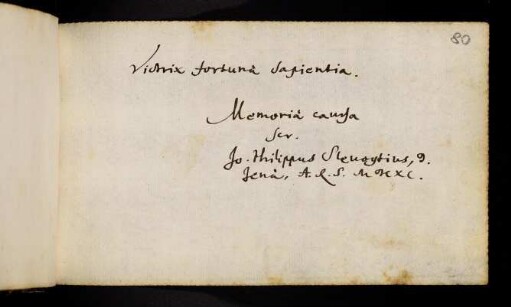 80
Victrix fortunâ Sapientia.
Memoriâ caussa
scr.
Jo. Philippus Slevogtius, D.
Jenâ, A. R. S.